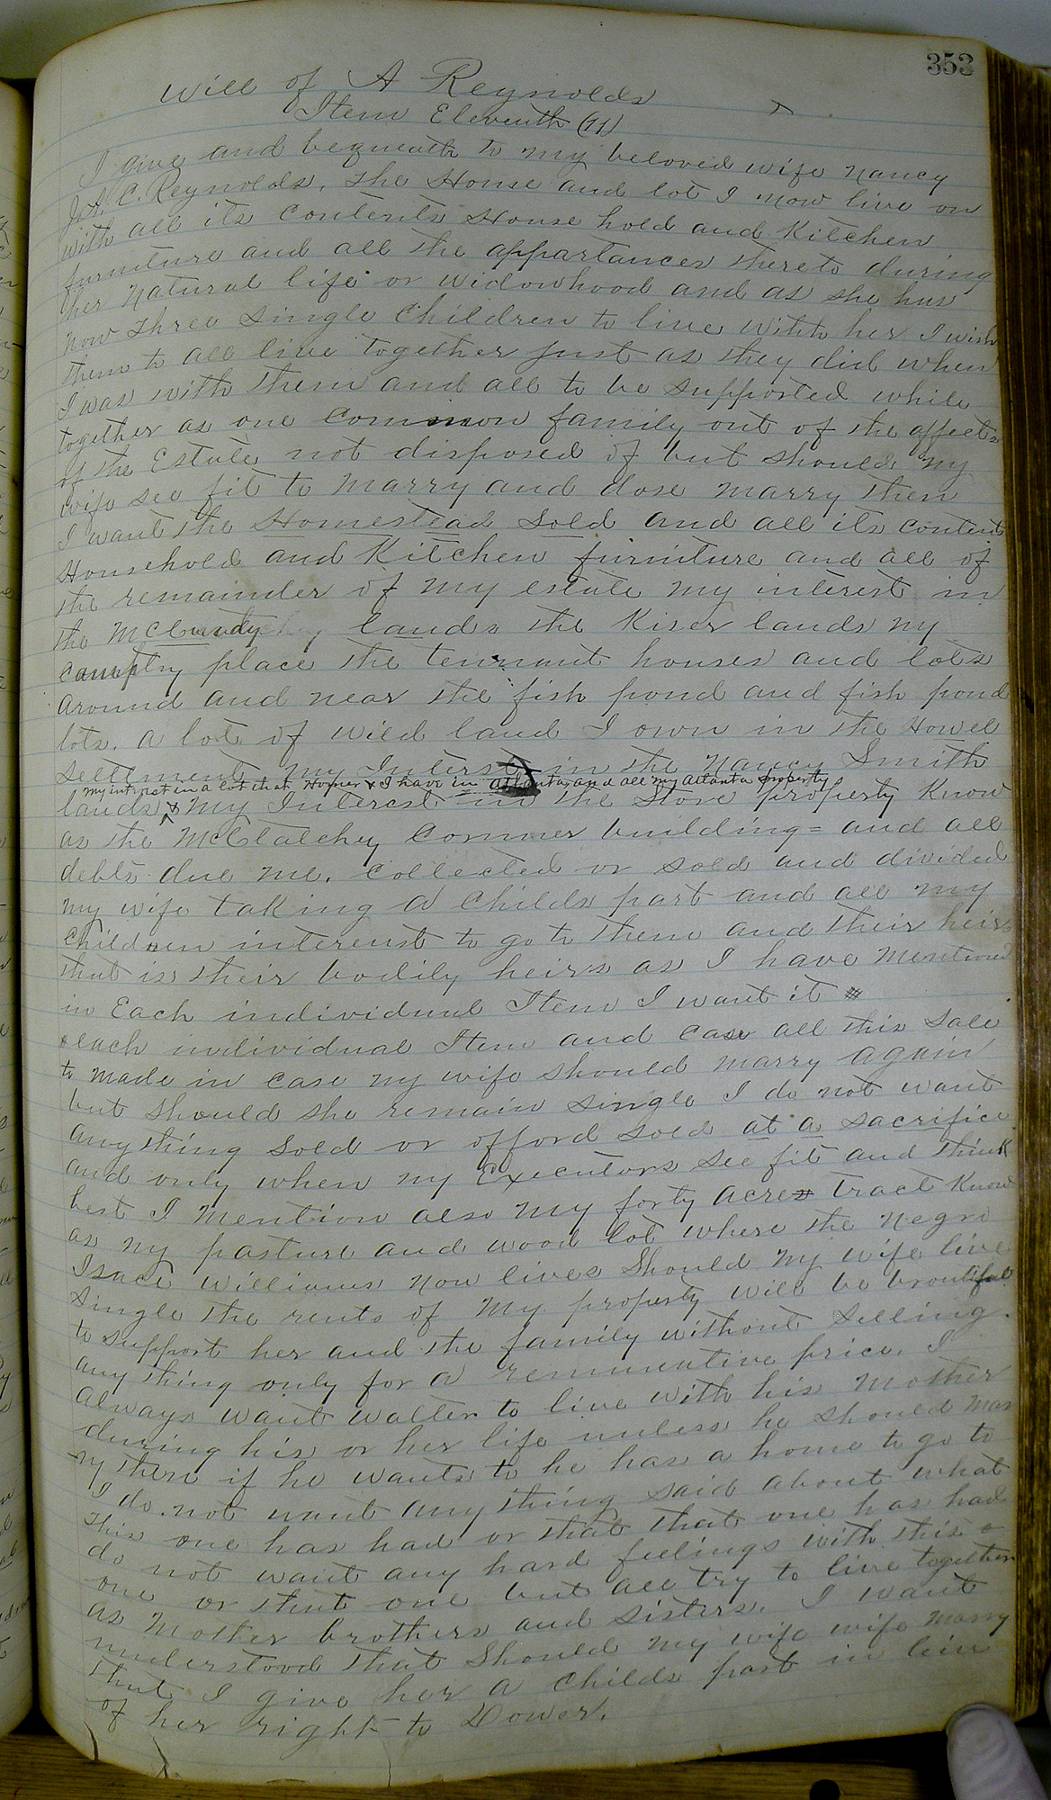 353
Will of A Reynolds
Item Eleventh (11)
I give and bequeath to my beloved wife Nancy
J. A. C. Reynolds, the House and lot I now live on
with all its contents House hold and Kitchen
furniture and all the appartances thereto during
her natural life or widowhood and as she has
now three single children to live with her I wish
them to all live together just as they did when
I was with them and all to be supported while
together as one common family out of the affects
of the Estate not disposed of but should my
wife see fit to marry and dose marry then
I want the Homestead sold and all its content
Household and Kitchen furniture and all of
the remainder of my estate my interest in
the lands the Kiser lands my
place the tennant houses and lots
around and near the fish pond and fish pond
lots. a lot of wild land I own in the Howel
settlement my Interst in the Nancy Smith
my intrest in a lot that Homer & I have in Atlanta and all my Atlanta property
lands & my Interest in the Store property Know
as the McClatchey Corner building = and all
debts due me. Collected or sold and divided
my wife taking a childs part and all my
children interenst to go to them and their heirs
that is their bodily heirs as I have mentiond
in Each individual Item I want it
each individual Item and case all this sale
to made in case my wife should marry again
but should she remain single I do not want
anything sold or offord sold at a sacrifice
and only when my Executors see fit and think
best I mention also my forty acres tract Know
as my pasture and wood lot where the negro
Isace Williams now lives Should my wife live
single the rents of my property will be
to support her and the family without selling
any thing only for a remunitive price. I
always want Walter to live with his Mother
during his or her life unless he should mar
ry then if he wants to he has a home to go to
I do not want anything said about what
this one has had or that that one has had
do not want any hard feelings with this
one or that one but all try to live together
as Mother brothers and sisters. I want
understood that Should my wife wife marry
that I give her a childs part in lieu
of her right to Dower.